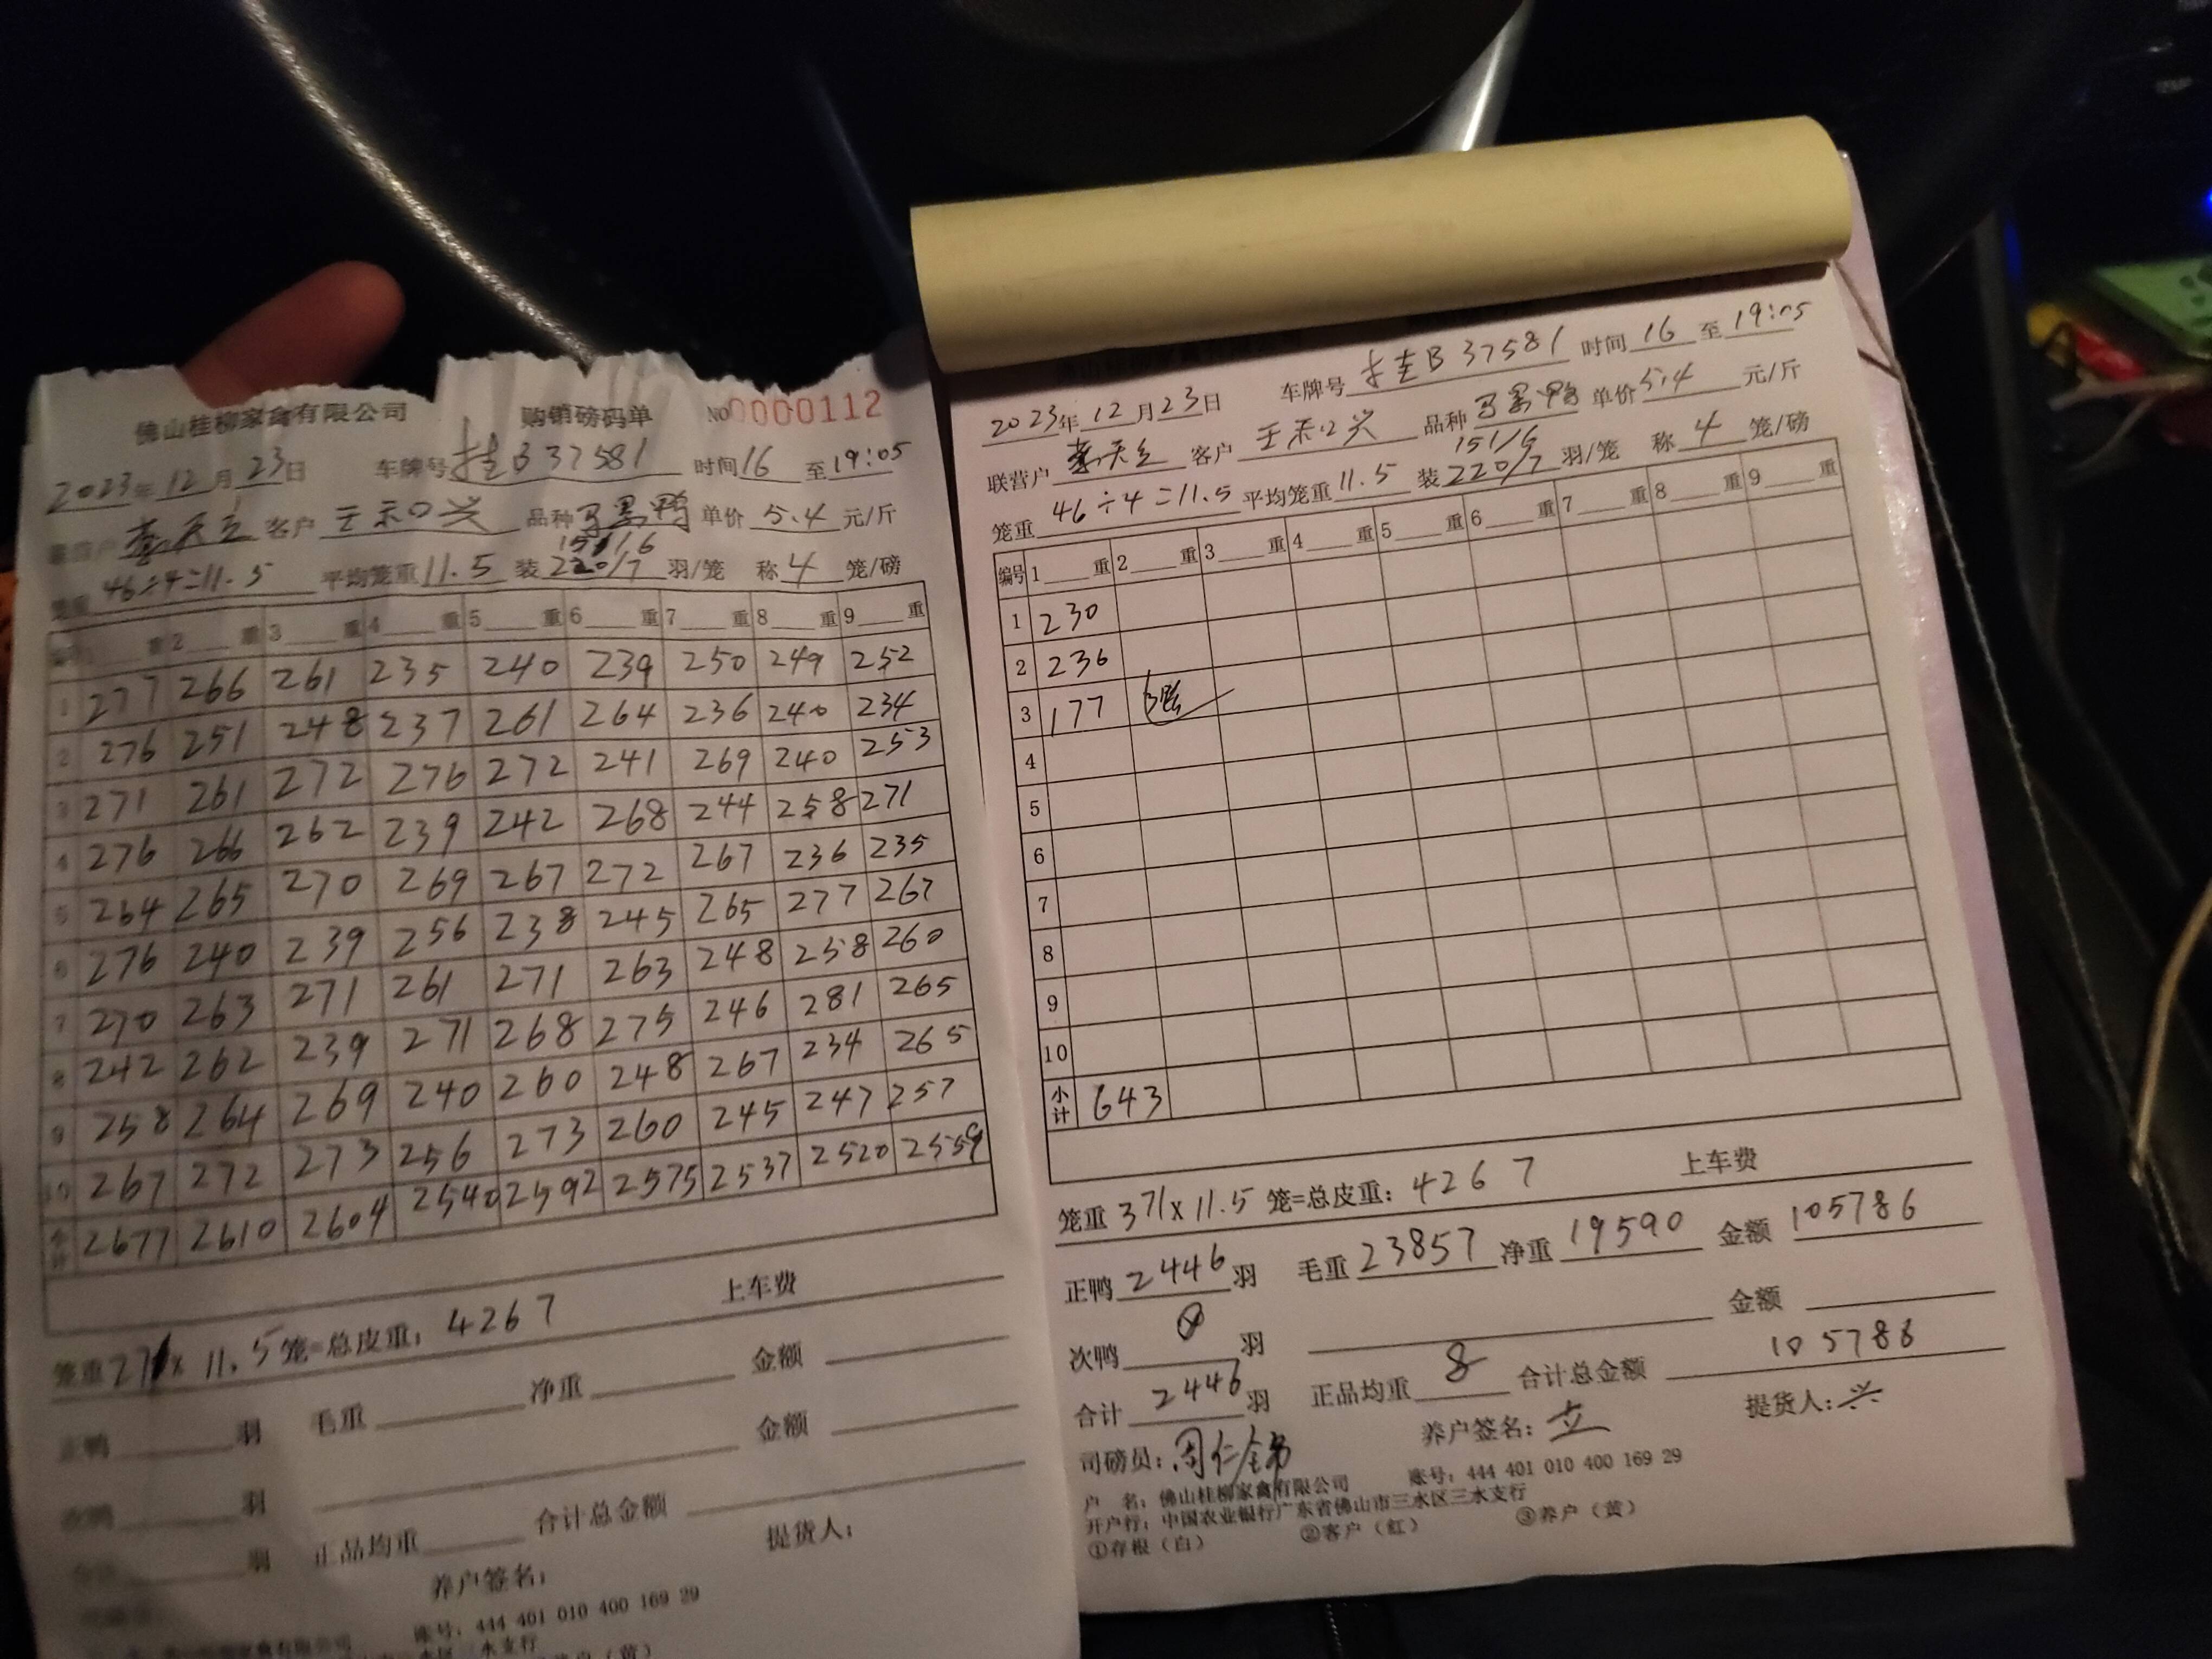 佛山桂柳家禽有限公司 购销磅码单 NO0000112
2023年 12 月 23日 车牌号 桂B37581 时间 16 至 19:05
客户 王禾口兴 品种 写黑鸭 单价 5.4 元/斤
151/6
46÷4=11.5 平均笼重 11.5 装 220/7 羽/笼 称 4 笼/磅
重 2 重 3 重 4 重 5 重 6 重 7 重 8 重 9 重
1 277 266 261 235 240 239 250 249 252
2 276 251 248 237 261 264 236 240 234
3 271 261 272 276 272 241 269 240 253
4 276 266 262 239 242 268 244 258 271
5 264 265 270 269 267 272 267 236 235
6 276 240 239 256 238 245 265 277 267
7 270 263 271 261 271 263 248 258 260
8 242 262 239 271 268 275 246 281 265
9 258 264 269 240 260 248 267 234 265
10 267 272 273 256 273 260 245 247 257
小计 2677 2610 2604 2540 2592 2575 2537 2520 2559
上车费
笼重 271 x 11.5 笼=总皮重: 4267
正鸭 羽 毛重 净重 金额
次鸭 羽 金额
羽 正品均重 合计总金额
养户签名: 提货人:
账号: 444 401 010 400 169 29
2023年 12 月 23日 车牌号 桂B37581 时间 16 至 19:05
联营户 客户 王禾口兴 品种 写黑鸭 单价 5.4 元/斤
151/6
笼重 46÷4=11.5 平均笼重 11.5 装 220/7 羽/笼 称 4 笼/磅
编号 1 重 2 重 3 重 4 重 5 重 6 重 7 重 8 重 9 重
1 230
2 236
3 177
4
5
6
7
8
9
10
小计 643
上车费
笼重 371 x 11.5 笼=总皮重: 4267
正鸭 2446 羽 毛重 23857 净重 19590 金额 105786
次鸭 0 羽 金额
合计 2446 羽 正品均重 8 合计总金额 105788
司磅员: 周仁锦 养户签名: 立 提货人: 兴
户 名: 佛山桂柳家禽有限公司 账号: 444 401 010 400 169 29
开户行: 中国农业银行广东省佛山市三水区三水支行
①存根(白) ②客户(红) ③养户(黄)